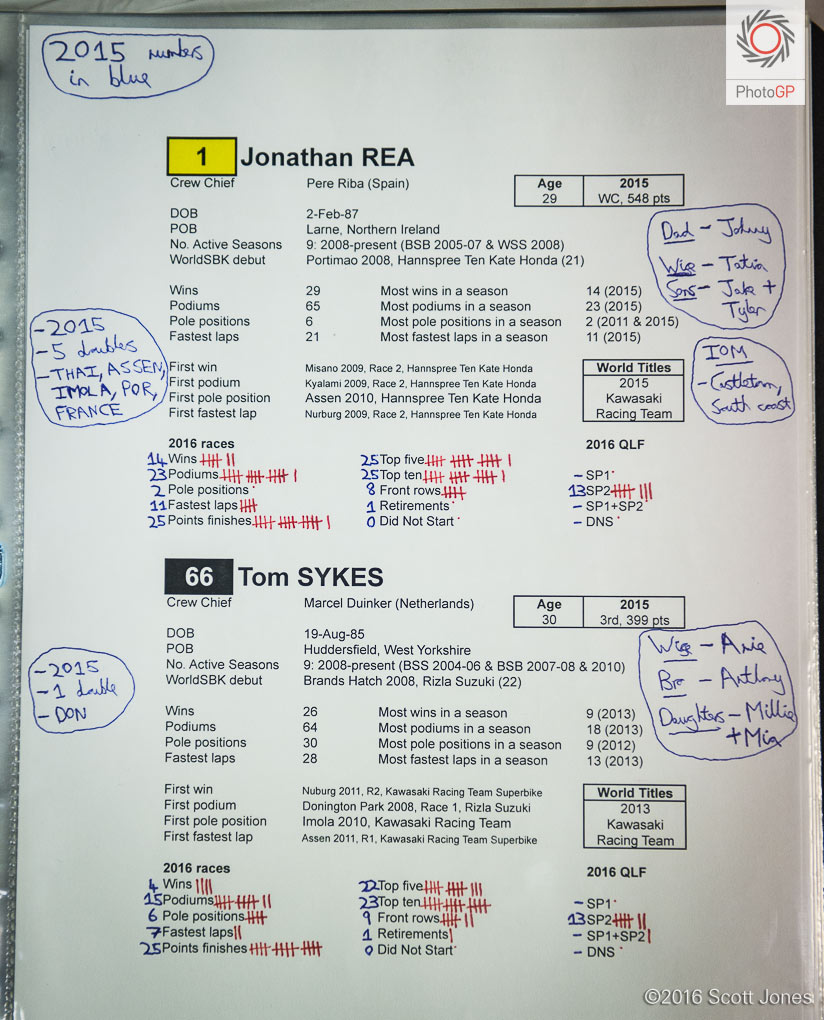 2015 numbers
in blue
PhotoGP
1 Jonathan REA
Crew Chief Pere Riba (Spain)
Age 2015
29 WC, 548 pts
DOB 2-Feb-87
POB Larne, Northern Ireland
No. Active Seasons 9: 2008-present (BSB 2005-07 & WSS 2008)
WorldSBK debut Portimao 2008, Hannspree Ten Kate Honda (21)
Dad - Johnny
Wife - Tatia
Sons - Jake +
Tyler
Wins 29 Most wins in a season 14 (2015)
Podiums 65 Most podiums in a season 23 (2015)
Pole positions 6 Most pole positions in a season 2 (2011 & 2015)
Fastest laps 21 Most fastest laps in a season 11 (2015)
- 2015
- 5 doubles
- THAI, ASSEN,
IMOLA, POR,
FRANCE
First win Misano 2009, Race 2, Hannspree Ten Kate Honda
First podium Kyalami 2009, Race 2, Hannspree Ten Kate Honda
First pole position Assen 2010, Hannspree Ten Kate Honda
First fastest lap Nurburg 2009, Race 2, Hannspree Ten Kate Honda
World Titles
2015
Kawasaki
Racing Team
IOM
- Castletown,
South coast
2016 races 2016 QLF
14 Wins 25 Top five - SP1
23 Podiums 25 Top ten 13 SP2
2 Pole positions 8 Front rows - SP1+SP2
11 Fastest laps 1 Retirements - DNS
25 Points finishes 0 Did Not Start
66 Tom SYKES
Crew Chief Marcel Duinker (Netherlands)
Age 2015
30 3rd, 399 pts
DOB 19-Aug-85
POB Huddersfield, West Yorkshire
No. Active Seasons 9: 2008-present (BSS 2004-06 & BSB 2007-08 & 2010)
WorldSBK debut Brands Hatch 2008, Rizla Suzuki (22)
Wife - Amie
Bro - Anthony
Daughters - Millie
+ Mia
- 2015
- 1 double
- DON
Wins 26 Most wins in a season 9 (2013)
Podiums 64 Most podiums in a season 18 (2013)
Pole positions 30 Most pole positions in a season 9 (2012)
Fastest laps 28 Most fastest laps in a season 13 (2013)
First win Nuburg 2011, R2, Kawasaki Racing Team Superbike
First podium Donington Park 2008, Race 1, Rizla Suzuki
First pole position Imola 2010, Kawasaki Racing Team
First fastest lap Assen 2011, R1, Kawasaki Racing Team Superbike
World Titles
2013
Kawasaki
Racing Team
2016 races 2016 QLF
4 Wins 22 Top five - SP1
15 Podiums 23 Top ten 13 SP2
6 Pole positions 9 Front rows - SP1+SP2
7 Fastest laps 1 Retirements - DNS
25 Points finishes 0 Did Not Start
©2016 Scott Jones